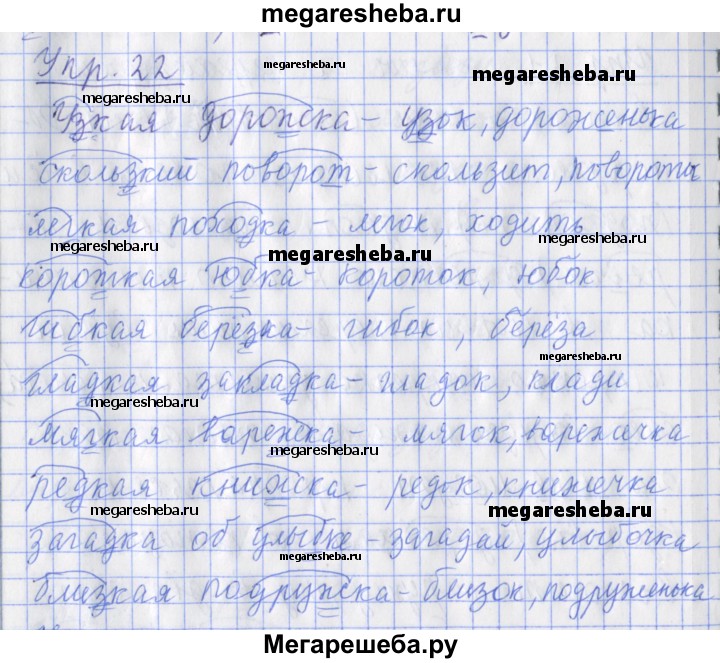 megaresheba.ru
Упр. 22
megaresheba.ru
megaresheba.ru
megaresheba.ru
Узкая дорожка - узок, дороженька
megaresheba.ru
megaresheba.ru
скользкий поворот - скользит, повороты
легкая походка - легок, ходить
megaresheba.ru
megaresheba.ru
megaresheba.ru
короткая юбка - короток, юбок
гибкая берёзка - гибок, берёза
megaresheba.ru
megaresheba.ru
гладкая закладка - гладок, клади
megaresheba.ru
мягкая варежка - мягок, варежичка
megaresheba.ru
редкая книжка - редок, книжечка
megaresheba.ru
megaresheba.ru
megaresheba.ru
загадка об улыбке - загадай, улыбочка
megaresheba.ru
близкая подружка - близок, подруженька
megaresheba.ru
megaresheba.ru
Мегарешеба.ру